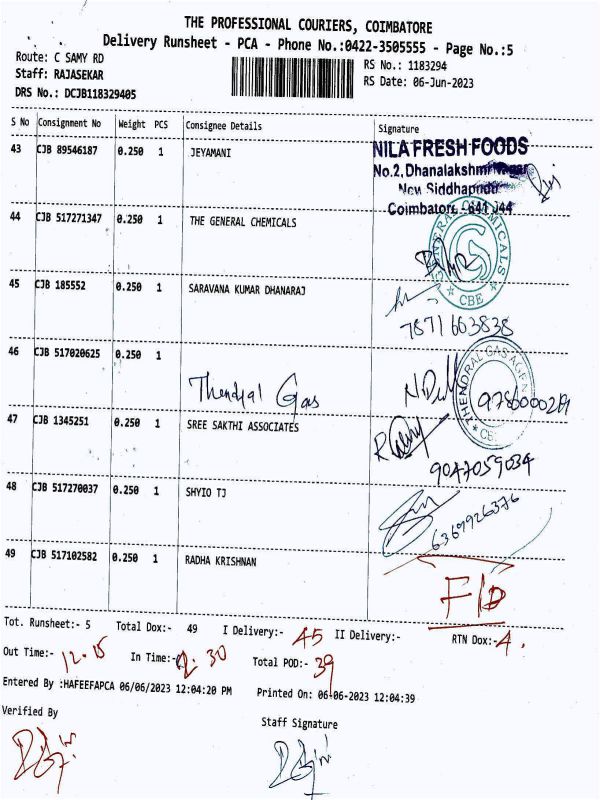 THE PROFESSIONAL COURIERS, COIMBATORE
Delivery Runsheet - PCA - Phone No.:0422-3505555 - Page No.:5
Route: C SAMY RD
RS No.: 1183294
Staff: RAJASEKAR
RS Date: 06-Jun-2023
DRS No.: DCJB118329405
S No Consignment No Weight PCS Consignee Details Signature
43 CJB 89546187 0.250 1 JEYAMANI
NILA FRESH FOODS
No.2, Dhanalakshmi Nagar
New Siddhapudur
Coimbatore - 641 044
44 CJB 517271347 0.250 1 THE GENERAL CHEMICALS
GENERAL CHEMICALS
CBE
45 CJB 185552 0.250 1 SARAVANA KUMAR DHANARAJ
7871663838
46 CJB 517020625 0.250 1
Thendral Gas
THENDRAL GAS AGEN
47 CJB 1345251 0.250 1 SREE SAKTHI ASSOCIATES
9047059034
48 CJB 517270037 0.250 1 SHYIO TJ
6369926376
49 CJB 517102582 0.250 1 RADHA KRISHNAN
Tot. Runsheet:- 5 Total Dox:- 49 I Delivery:- 45 II Delivery:- RTN Dox:- 4.
Out Time:- 12.15 In Time:- 2.30 Total POD:- 39
Entered By :HAFEEFAPCA 06/06/2023 12:04:20 PM Printed On: 06-06-2023 12:04:39
Verified By
Staff Signature